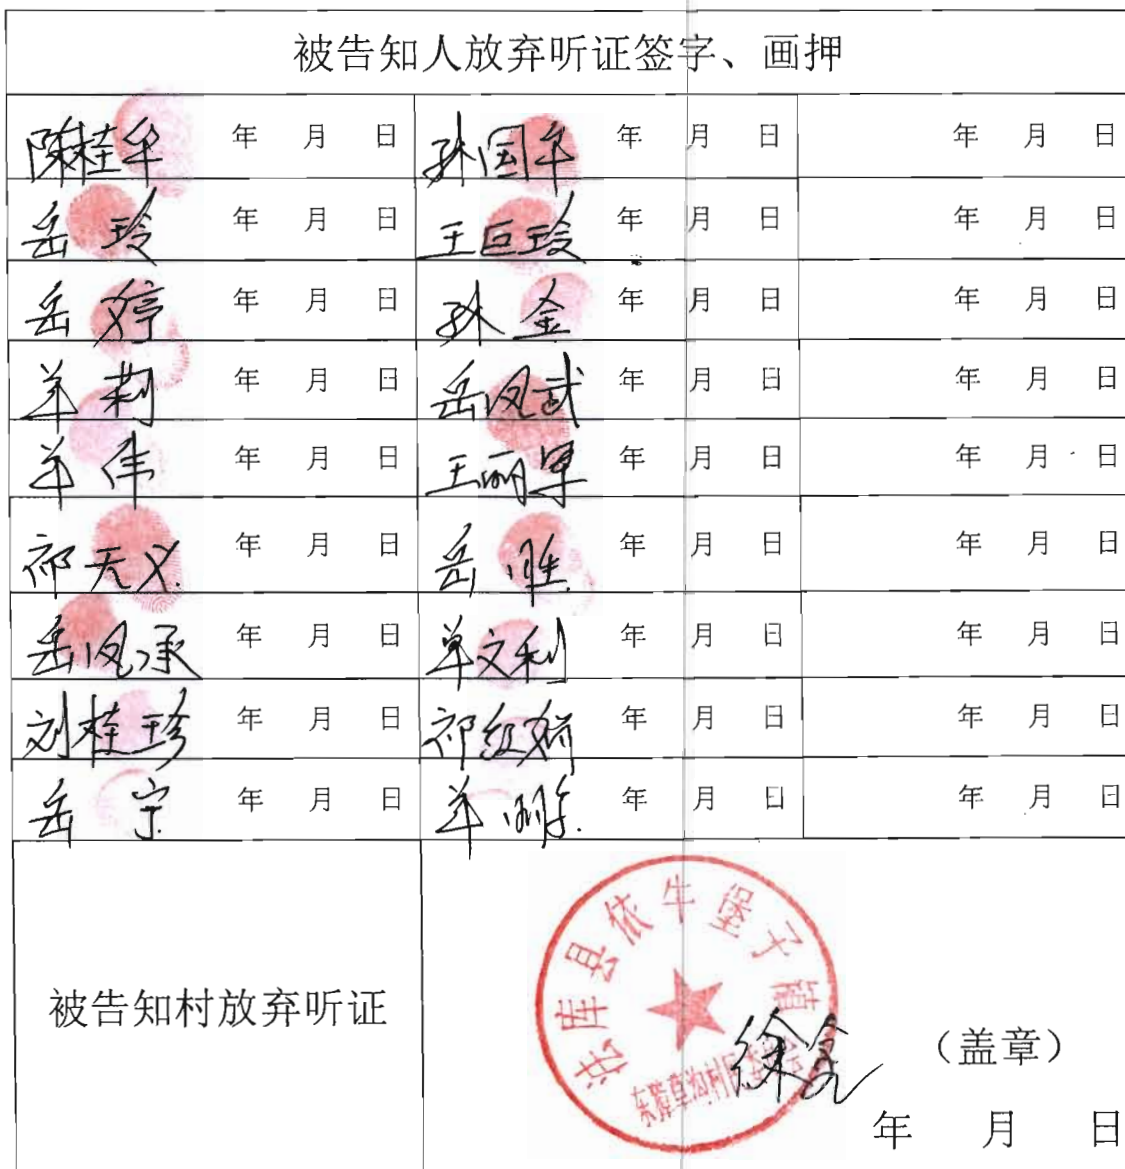 被告知人放弃听证签字、画押
陈桂华 年 月 日 孙国年 年 月 日 年 月 日
岳玲 年 月 日 王巨玲 年 月 日 年 月 日
岳婷 年 月 日 孙金 年 月 日 年 月 日
羊莉 年 月 日 岳凤武 年 月 日 年 月 日
羊伟 年 月 日 王丽 年 月 日 年 月 日
祁天义 年 月 日 岳胜 年 月 日 年 月 日
岳凤承 年 月 日 单文利 年 月 日 年 月 日
刘桂珍 年 月 日 祁红娇 年 月 日 年 月 日
岳宁 年 月 日 年 月 日 年 月 日
法库县依牛堡子镇
被告知村放弃听证
徐
(盖章)
年 月 日